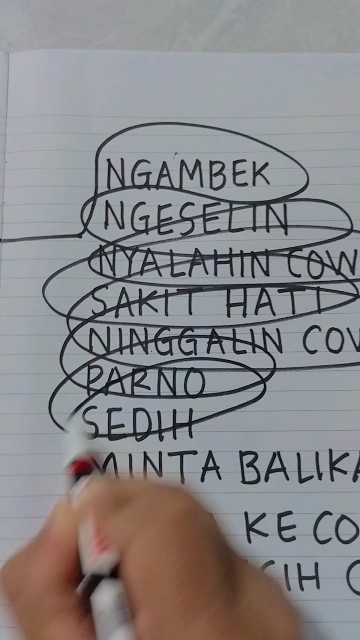 NGAMBEK
NGESELIN
NYALAHIN COW
SAKIT HATI
NINGGALIN COW
PARNO
SEDIH
MINTA BALIKA
KE CO